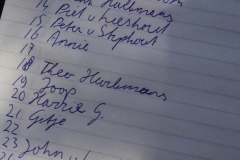 14 Piet v Lieshout
15 Peter v Stiphout
16 Annie
17
18 Theo Hurkmans
19 Joop
20 Harrie G.
21
22
23 John v